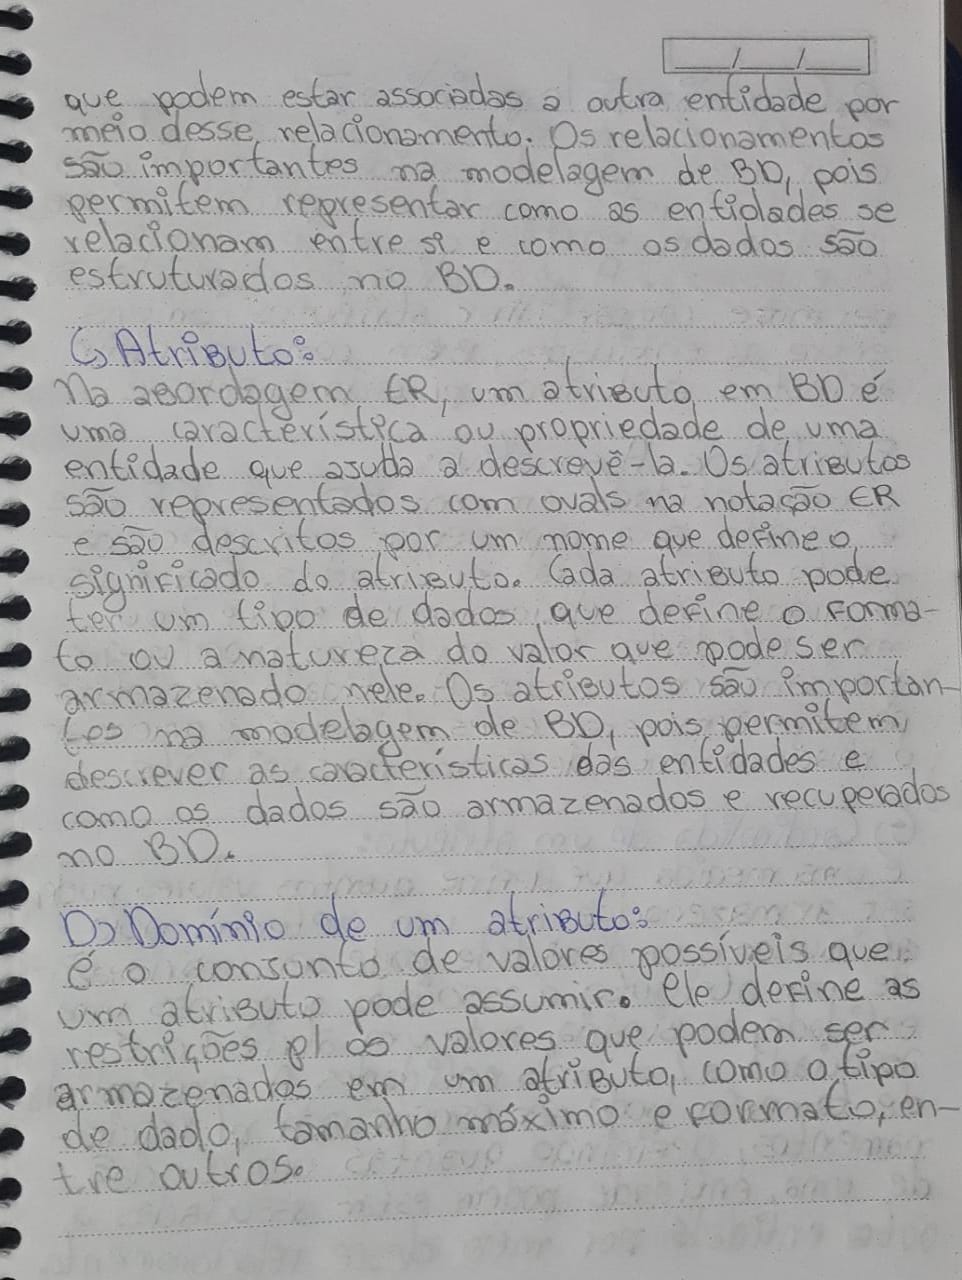 que podem estar associadas a outra entidade por
meio desse relacionamento. Os relacionamentos
são importantes na modelagem de BD, pois
permitem representar como as entidades se
relacionam entre si e como os dados são
estruturados no BD.
C) Atributo:
Na abordagem ER, um atributo em BD é
uma característica ou propriedade de uma
entidade que ajuda a descrevê-la. Os atributos
são representados com ovals na notação ER
e são descritos por um nome que define o
significado do atributo. Cada atributo pode
ter um tipo de dados que define o forma-
to ou a natureza do valor que pode ser
armazenado nele. Os atributos são importan-
tes na modelagem de BD, pois permitem
descrever as características das entidades e
como os dados são armazenados e recuperados
no BD.
D) Domínio de um atributo:
é o conjunto de valores possíveis que
um atributo pode assumir. Ele define as
restrições p/ os valores que podem ser
armazenados em um atributo, como o tipo
de dado, tamanho máximo e formato, en-
tre outros.